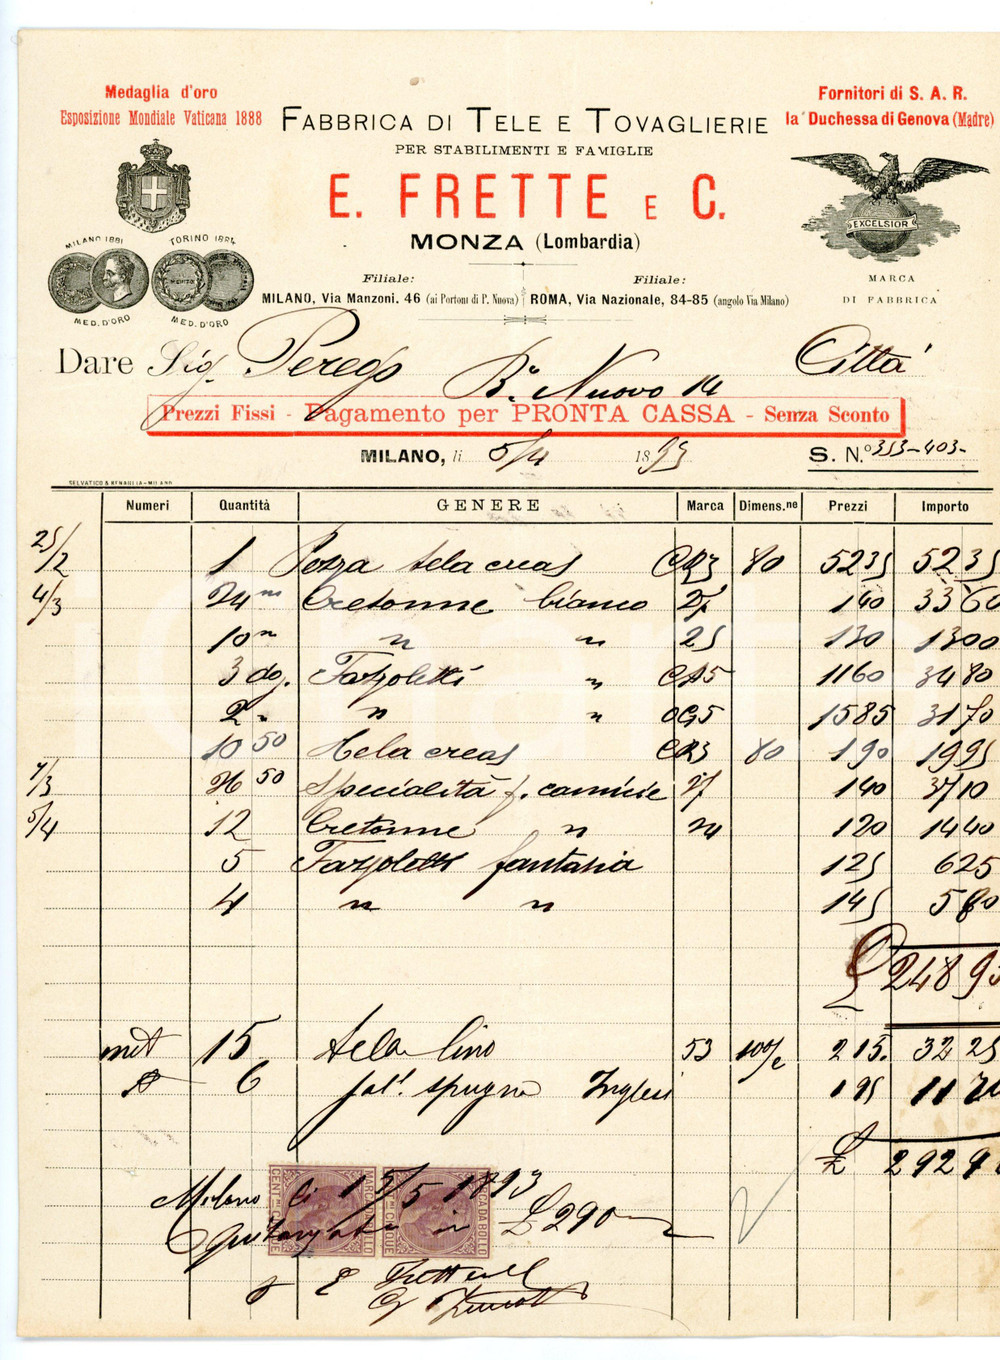 Medaglia d'oro
Esposizione Mondiale Vaticana 1888
Fornitori di S. A. R.
la Duchessa di Genova (Madre)
FABBRICA DI TELE E TOVAGLIERIE
PER STABILIMENTI E FAMIGLIE
E. FRETTE E C.
MONZA (Lombardia)
MILANO 1881
TORINO 1884
MED. D'ORO
MED. D'ORO
EXCELSIOR
MARCA
DI FABBRICA
Filiale:
MILANO, Via Manzoni. 46 (ai Portoni di P. Nuova)
Filiale:
ROMA, Via Nazionale, 84-85 (angolo Via Milano)
Dare Sig. Perego Bo. Nuovo 14 Città
Prezzi Fissi - Pagamento per PRONTA CASSA - Senza Sconto
MILANO, li 5/4 1893 S. N.º 353-403-
SELVATICO & BENAGLIA - MILANO
Numeri Quantità GENERE Marca Dimens.ne Prezzi Importo
25/2 1 Pezza tela creas CR3 80 5235 5235
4/3 24 m Cretonne bianco 140 3360
10 m " " 25 130 1300
3 dog. Fazzoletti " 1160 3480
2 " " " OG5 1585 3170
10 50 Tela creas CR3 80 190 1995
7/3 26 50 Specialità p. camicie 140 3710
5/4 12 Cretonne " 120 1440
5 Fazzoletti fantasia 125 625
4 " " 145 580
£ 24895
met 15 tela lino 53 100/c 215. 3225
6 spugna Inglesi 195
£
Milano li 15/5 1893
Quitanzata in £ 290
E. Frette e C.
MARCA DA BOLLO
CENT.MI CINQUE